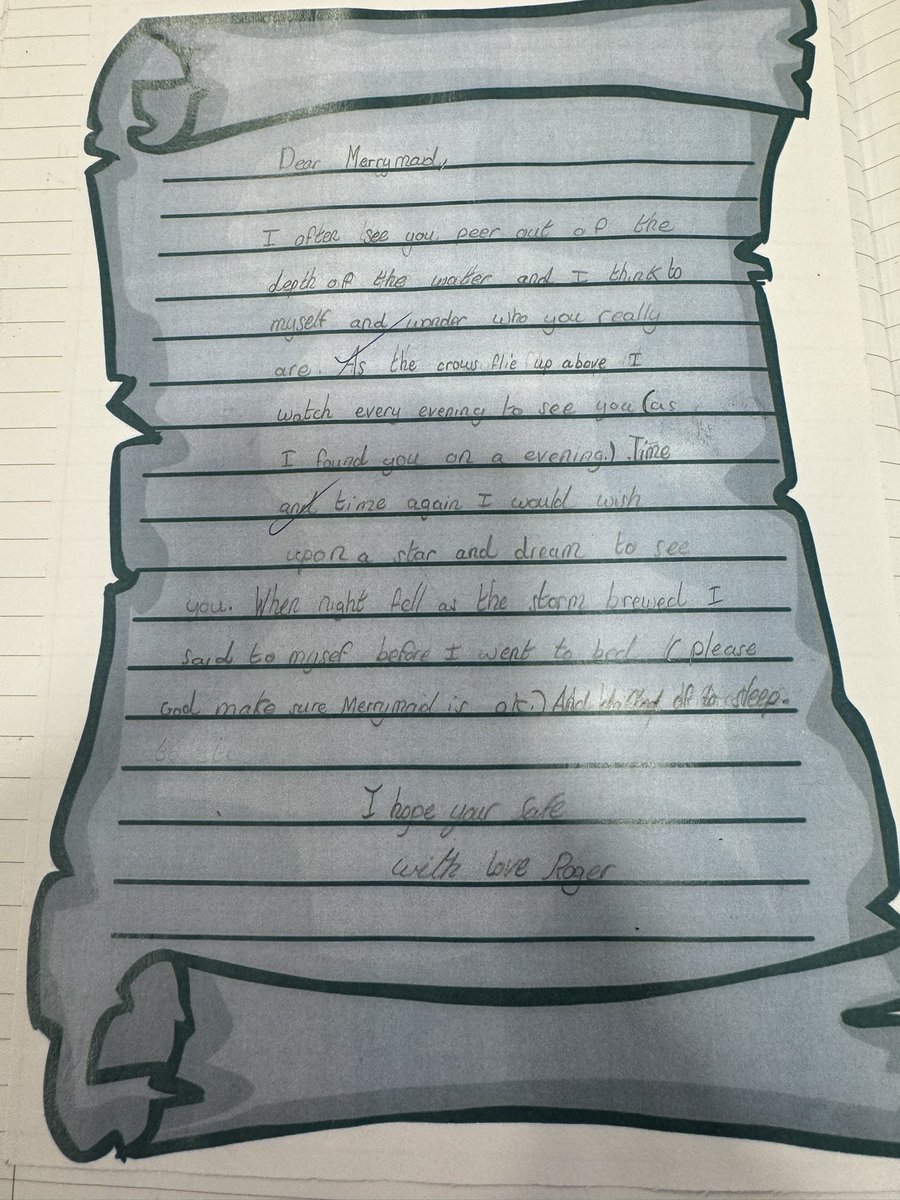 Dear Merrymaid,
I often see you peer out of the
depth of the water and I think to
myself and wonder who you really
are. As the crows flie up above I
watch every evening to see you (as
I found you on a evening.) Time
and time again I would wish
upon a star and dream to see
you. When night fell as the storm brewed I
said to mysef before I went to bed (please
God make sure Merrymaid is ok.) And of to sleep.
I hope your safe
with love Roger